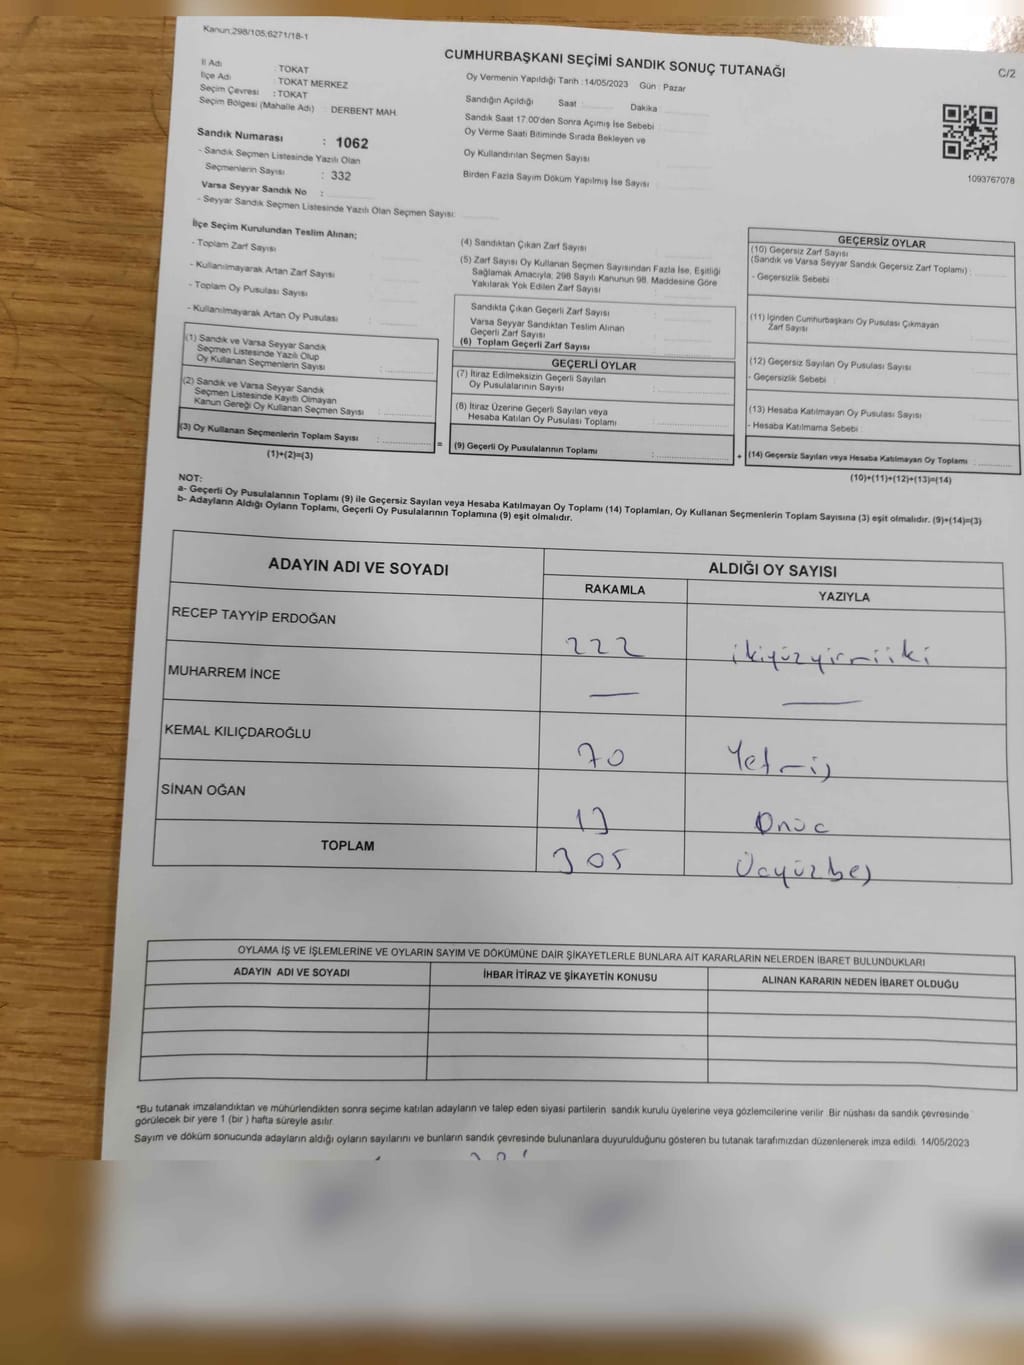 Kanun:298/105;6271/18-1
CUMHURBAŞKANI SEÇİMİ SANDIK SONUÇ TUTANAĞI
C/2
İl Adı : TOKAT
İlçe Adı : TOKAT MERKEZ
Seçim Çevresi : TOKAT
Seçim Bölgesi (Mahalle Adı) : DERBENT MAH.
Oy Vermenin Yapıldığı Tarih :14/05/2023 Gün : Pazar
Sandığın Açıldığı Saat Dakika
Sandık Saat 17:00'den Sonra Açımış İse Sebebi
Oy Verme Saati Bitiminde Sırada Bekleyen ve
Oy Kullandırılan Seçmen Sayısı
Birden Fazla Sayım Döküm Yapılmış İse Sayısı
1093767078
Sandık Numarası : 1062
- Sandık Seçmen Listesinde Yazılı Olan
Seçmenlerin Sayısı : 332
Varsa Seyyar Sandık No :
- Seyyar Sandık Seçmen Listesinde Yazılı Olan Seçmen Sayısı:
İlçe Seçim Kurulundan Teslim Alınan;
- Toplam Zarf Sayısı
- Kullanılmayarak Artan Zarf Sayısı
- Toplam Oy Pusulası Sayısı
- Kullanılmayarak Artan Oy Pusulası :
(1) Sandık ve Varsa Seyyar Sandık
Seçmen Listesinde Yazılı Olup
Oy Kullanan Seçmenlerin Sayısı :
(2) Sandık ve Varsa Seyyar Sandık
Seçmen Listesinde Kayıtlı Olmayan
Kanun Gereği Oy Kullanan Seçmen Sayısı :
(3) Oy Kullanan Seçmenlerin Toplam Sayısı :
(1)+(2)=(3)
(4) Sandıktan Çıkan Zarf Sayısı
(5) Zarf Sayısı Oy Kullanan Seçmen Sayısından Fazla İse, Eşitliği
Sağlamak Amacıyla; 298 Sayılı Kanunun 98. Maddesine Göre
Yakılarak Yok Edilen Zarf Sayısı :
Sandıkta Çıkan Geçerli Zarf Sayısı :
Varsa Seyyar Sandıktan Teslim Alınan
Geçerli Zarf Sayısı :
(6) Toplam Geçerli Zarf Sayısı
GEÇERLİ OYLAR
(7) İtiraz Edilmeksizin Geçerli Sayılan
Oy Pusulalarının Sayısı :
(8) İtiraz Üzerine Geçerli Sayılan veya
Hesaba Katılan Oy Pusulası Toplamı :
= (9) Geçerli Oy Pusulalarının Toplamı :
GEÇERSİZ OYLAR
(10) Geçersiz Zarf Sayısı
(Sandık ve Varsa Seyyar Sandık Geçersiz Zarf Toplamı) :
- Geçersizlik Sebebi
(11) İçinden Cumhurbaşkanı Oy Pusulası Çıkmayan
Zarf Sayısı
(12) Geçersiz Sayılan Oy Pusulası Sayısı
- Geçersizlik Sebebi :
(13) Hesaba Katılmayan Oy Pusulası Sayısı
- Hesaba Katılmama Sebebi :
+ (14) Geçersiz Sayılan veya Hesaba Katılmayan Oy Toplamı :
(10)+(11)+(12)+(13)=(14)
NOT:
a- Geçerli Oy Pusulalarının Toplamı (9) ile Geçersiz Sayılan veya Hesaba Katılmayan Oy Toplamı (14) Toplamları, Oy Kullanan Seçmenlerin Toplam Sayısına (3) eşit olmalıdır. (9)+(14)=(3)
b- Adayların Aldığı Oyların Toplamı, Geçerli Oy Pusulalarının Toplamına (9) eşit olmalıdır.
ADAYIN ADI VE SOYADI
ALDIĞI OY SAYISI
RAKAMLA YAZIYLA
RECEP TAYYİP ERDOĞAN 222 ikiyüzyirmiiki
MUHARREM İNCE — —
KEMAL KILIÇDAROĞLU 70 Yetmiş
SİNAN OĞAN 13 Onüc
TOPLAM 305 Ücyüzbeş
OYLAMA İŞ VE İŞLEMLERİNE VE OYLARIN SAYIM VE DÖKÜMÜNE DAİR ŞİKAYETLERLE BUNLARA AİT KARARLARIN NELERDEN İBARET BULUNDUKLARI
ADAYIN ADI VE SOYADI İHBAR İTİRAZ VE ŞİKAYETİN KONUSU ALINAN KARARIN NEDEN İBARET OLDUĞU
*Bu tutanak imzalandıktan ve mühürlendikten sonra seçime katılan adayların ve talep eden siyasi partilerin sandık kurulu üyelerine veya gözlemcilerine verilir. Bir nüshası da sandık çevresinde
görülecek bir yere 1 (bir ) hafta süreyle asılır.
Sayım ve döküm sonucunda adayların aldığı oyların sayılarını ve bunların sandık çevresinde bulunanlara duyurulduğunu gösteren bu tutanak tarafımızdan düzenlenerek imza edildi. 14/05/2023